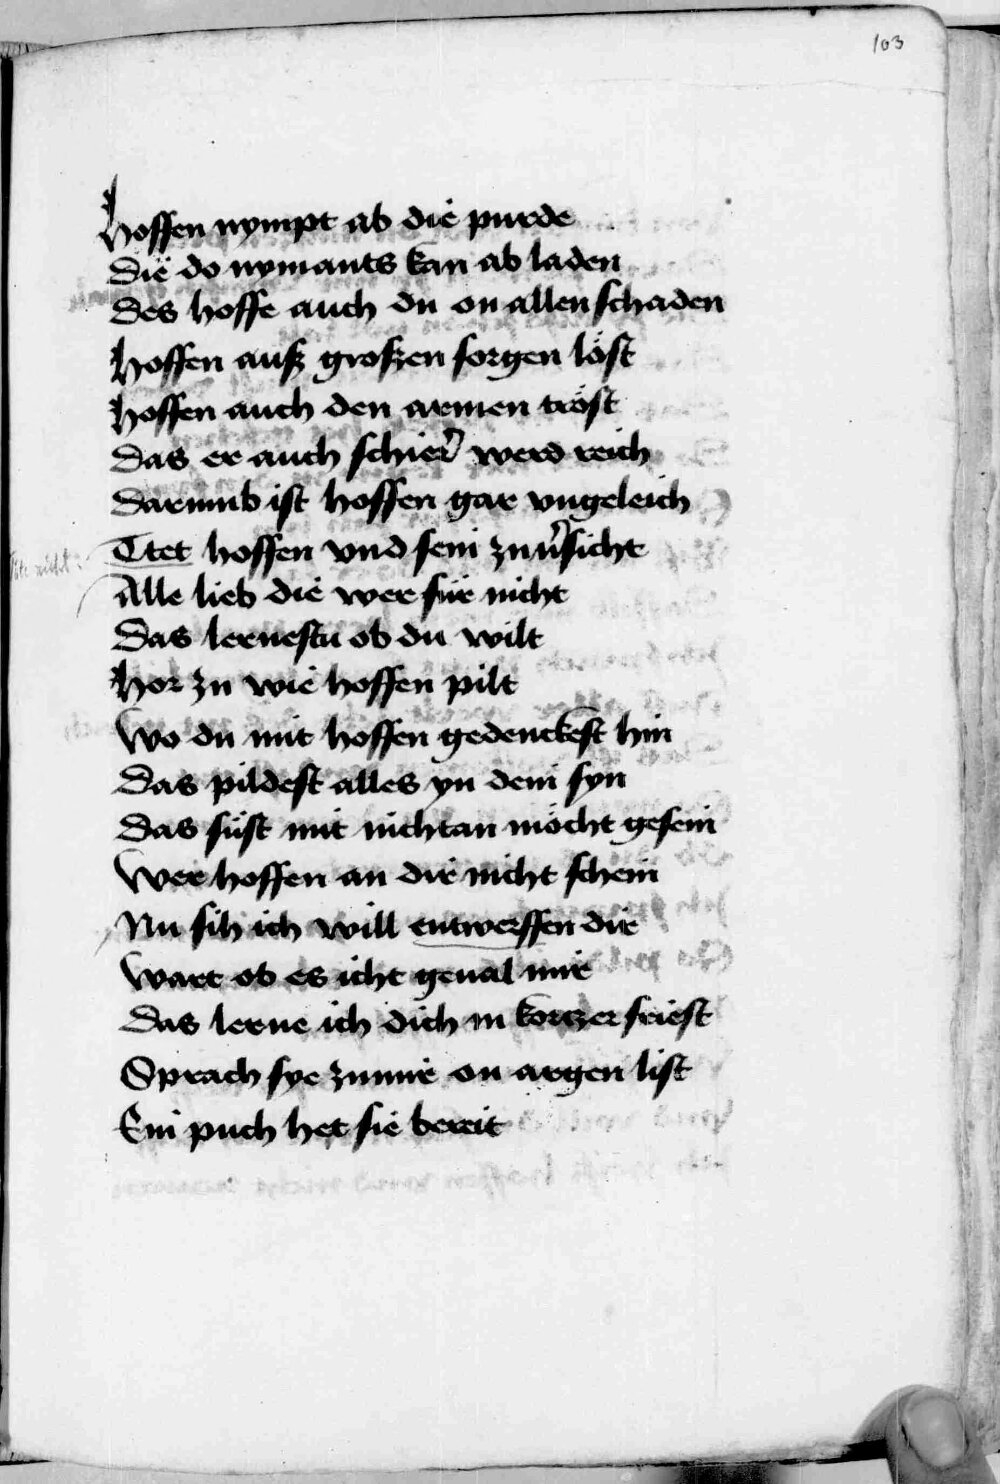 103
Hoffen nympt ab die purde
Die do nymants kan ab laden
Des hoffe auch du on allen schaden
Hoffen auß großen sorgen löst
Hoffen auch den armen tröst
Das er auch schier werd reich
Darumb ist hoffen gar vngeleich
Ttet hoffen vnd sein zuu̓sicht
Alle lieb die wer für nicht
Das lernestu ob du wilt
Hor zu wie hoffen pilt
Wo du mit hoffen gedenckest hin
Das pildest alles yn dein syn
Das süst mit nichtan möcht gesein
Wer hoffen an dir nicht schein
Nu sih ich will entwerffen dir
Wart ob es icht geual mir
Das lerne ich dich in kortzer friest
Sprach sye zu mir on argen list
Ein puch het sie bereit